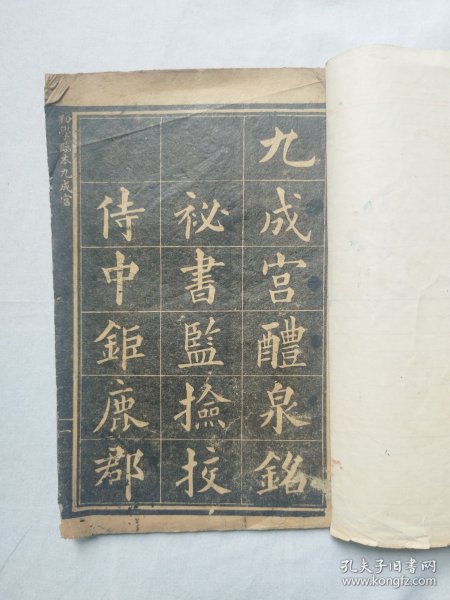 九成宫醴泉銘
祕書監撿挍
侍中鉅鹿郡
初學臨本九成宫
孔夫子旧书网
www.kongfz.com